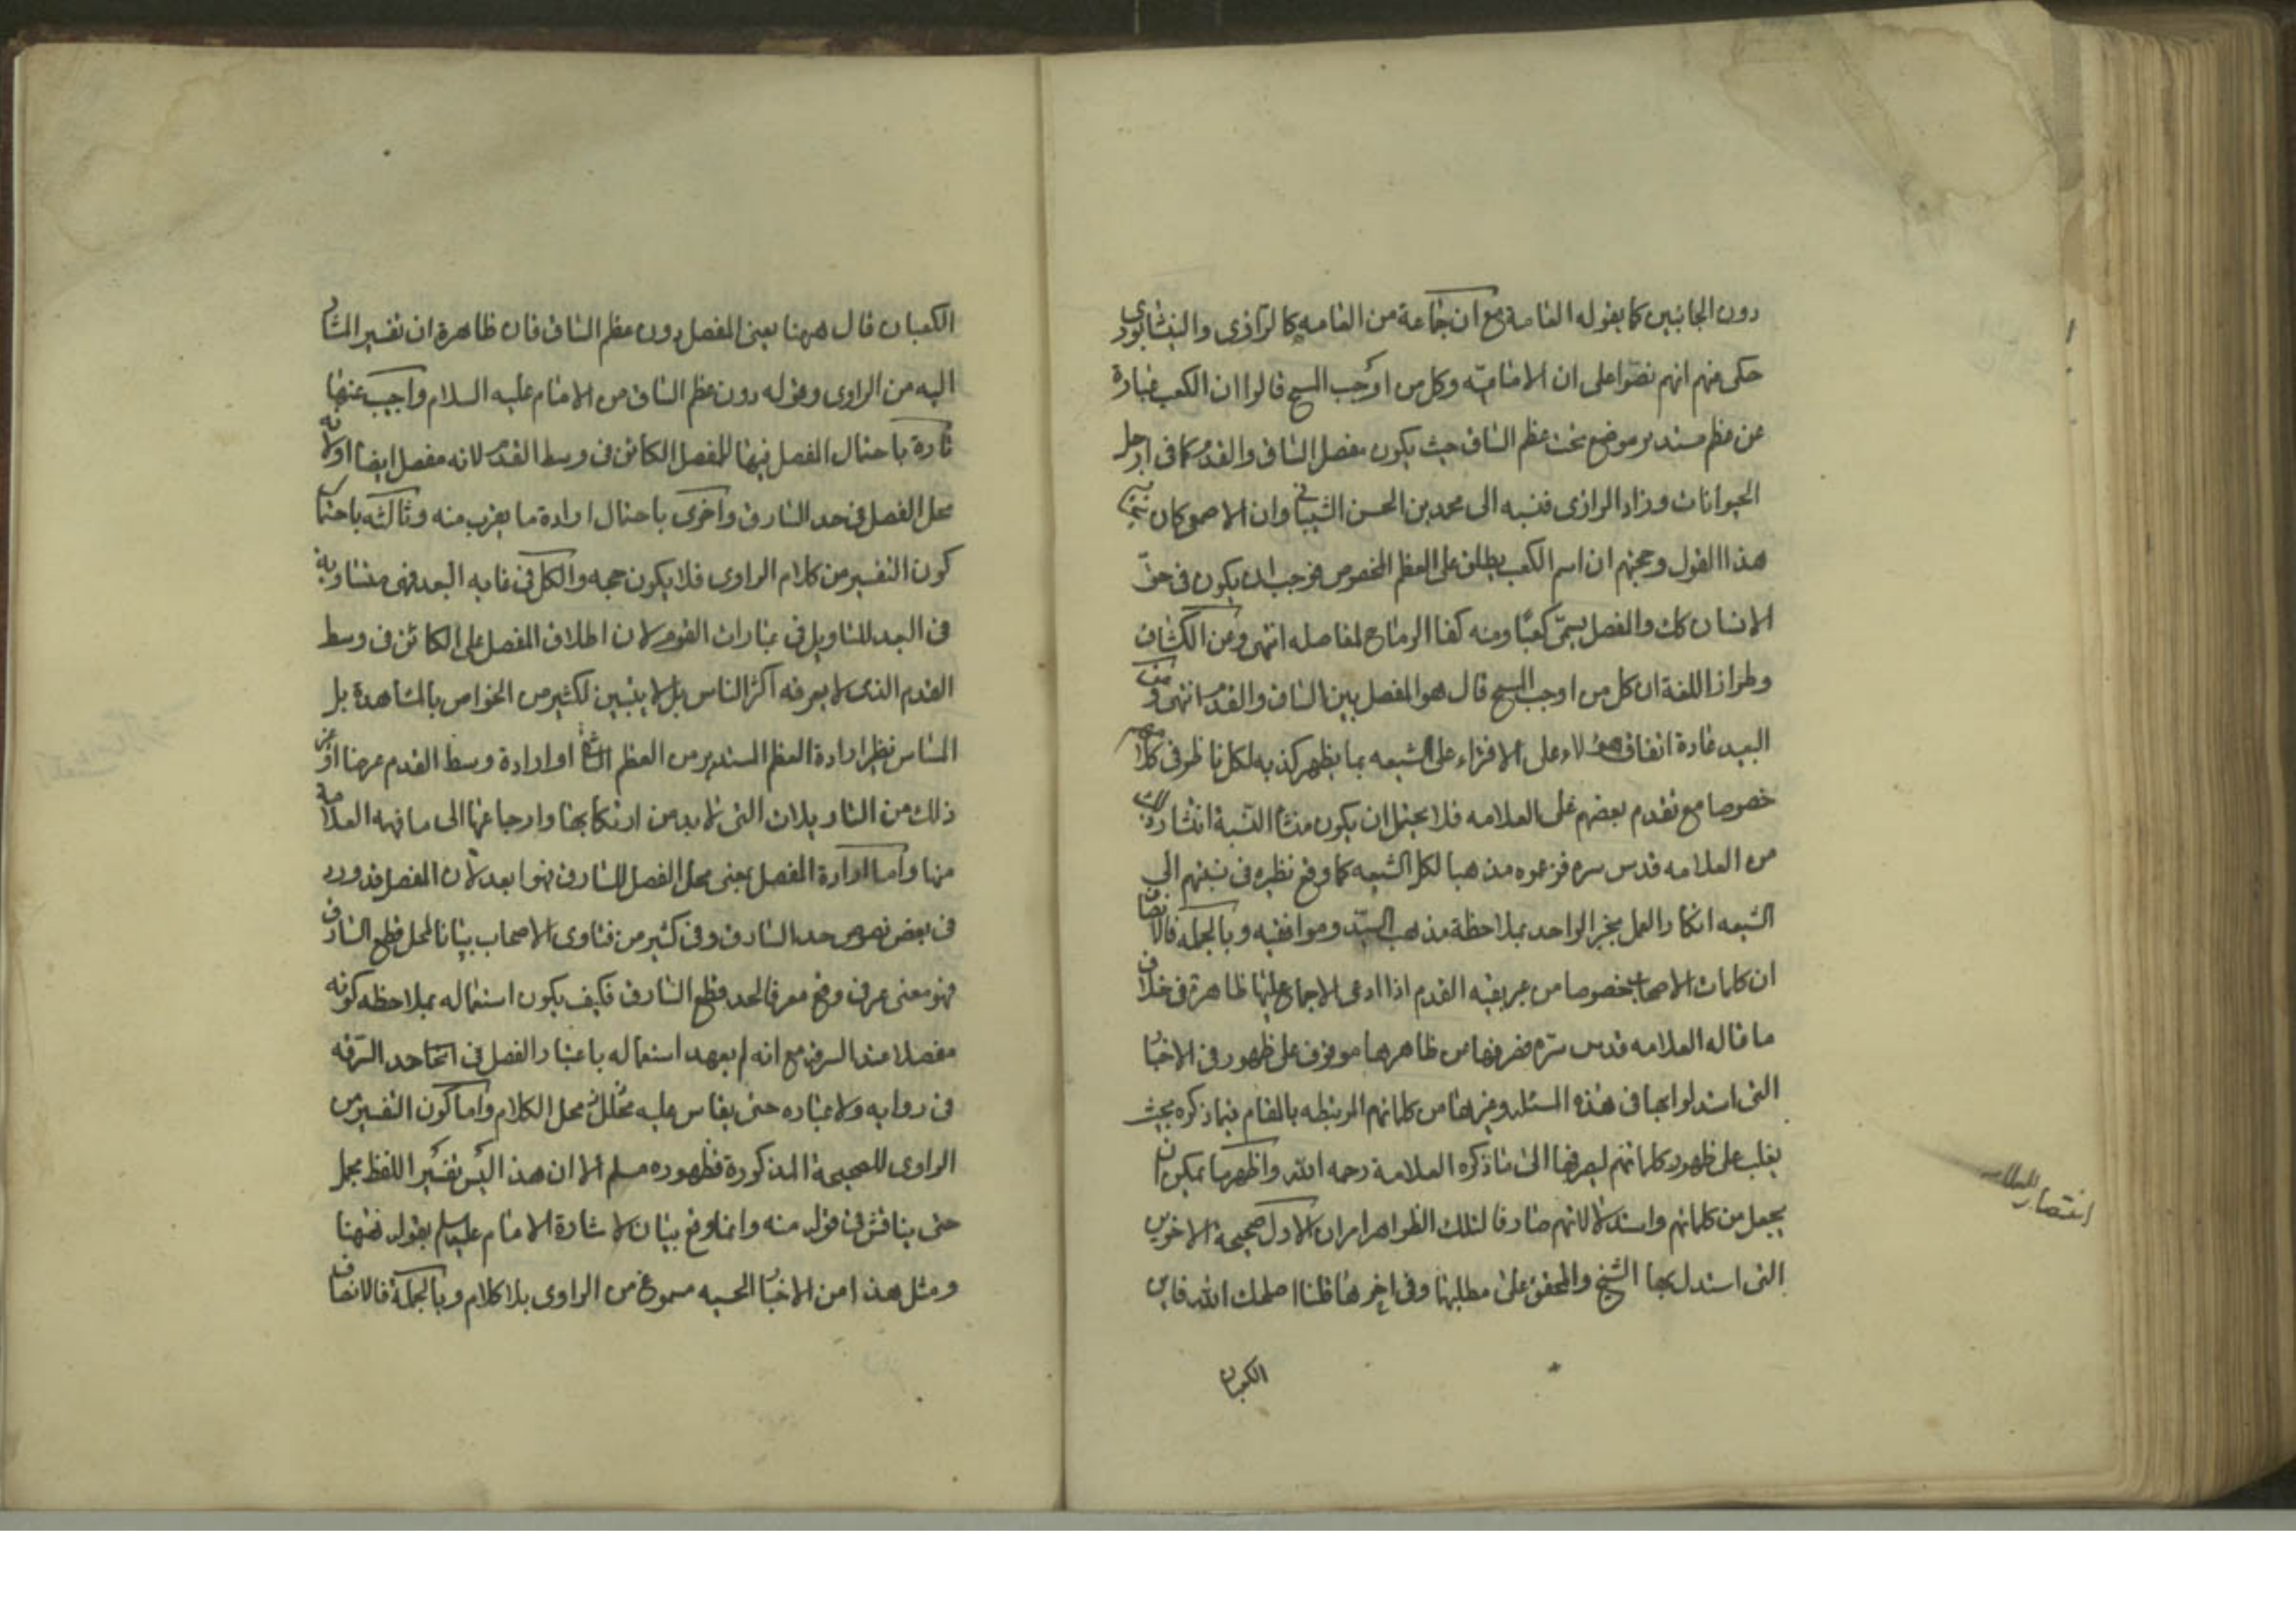 دون الجانبين كما يقوله العامة مع ان جماعة من العامه كالرازى والنيشابورى
حكى عنهم انهم نصوا على ان الاماميّة وكل من اوجب المسح قالوا ان الكعب عبارة
عن عظم مستدير موضع تحت عظم الساق حيث يكون مفصل الساق والقدم كما فى ارجل
الحيوانات وزاد الرازى فنسبه الى محمد بن الحسن الشيبانى وان الاصمعى كان
هذا القول وحجتهم ان اسم الكعب يطلق على العظم المخصوص فوجب ان يكون فى حق
الانسان كك والمفصل يسمّى كعبا ومنه كفا الرماح لمفاصله انتهى وعن الكشاف
وطراز اللغة ان كل من اوجب المسح قال هو المفصل بين الساق والقدم انتهى ومن
البعيد عادة اتفاق هؤلاء على الافتراء على الشيعه بما يظهر كذبه لكل ناظر فى كلامهم
خصوصا مع تقدم بعضهم على العلامه فلا يحتمل ان يكون منشا النسبة انتشار ذلك
من العلامه قدس سره فزعموه مذهبا لكل الشيعه كما وقع نظيره فى نسبتهم الى
الشيعه انكار العمل بخبر الواحد بملاحظة مذهب السيّد وموافقيه وبالجمله فالانصاف
ان كلمات الاصحاب خصوصا من عبر بقبة القدم اذا ادعى الاجماع عليها ظاهرة فى خلاف
ما قاله العلامه قدس سره فصرفها من ظاهرها موقوف على ظهور فى الاخبار
التى استدلوا بها فى هذه المسئله وغيرها من كلماتهم المرتبطه بالمقام فيما ذكره بحيث
يغلب على ظهور كلماتهم ليصرفها الى ما ذكره العلامة رحمه الله واظهر ما يمكن ان
يجعل من كلماتهم واستدلالاتهم صارفا لتلك الظواهر امران الاول صحيحة الاخوين
التى استدل بها الشيخ والمحقق على مطلبها وفى اخرها قلنا اصلحك الله فاين
الكعبان
انتصار للعلامه
الكعبان قال ههنا يعنى المفصل دون عظم الساق فان ظاهره ان تفسير المشار
اليه من الراوى وقوله دون عظم الساق من الامام عليه السلام واجيب عنها
تارة باحتمال المفصل فيها للمفصل الكائن فى وسط القدم لانه مفصل ايضا اولانه
محل الفصل فى حد السارق واخرى باحتمال ارادة ما يقرب منه وثالثه باحتمال
كون التفسير من كلام الراوى فلا يكون حجه والكل فى غايه البعد فهى متساوية
فى البعد للتاويل فى عبارات القوم لان اطلاق المفصل على الكائن فى وسط
القدم الذى لا يعرفه اكثر الناس بل لا يتبين لكثير من الخواص بالمشاهدة بل
المساس نظير ارادة العظم المستدير من العظم الناتى او ارادة وسط القدم عرضا او غير
ذلك من التاويلات التى لا بد من ارتكابها وارجاعها الى ما فهمه العلامة
منها واما ارادة المفصل بمعنى محل الفصل للسارق فهو ابعد لان المفصل قد ورد
فى بعض نصوص حد السارق وفى كثير من فتاوى الاصحاب بيانا لمحل قطع السارق
فهو معنى عرفى وقع معرفا لحد قطع السارق فكيف يكون استعماله بملاحظه كونه
مفصلا عند السرقة مع انه لم يعهد استعماله باعتبار الفصل فى احد السرقه
فى روايه ولا عباره حتى يقاس عليه محل الكلام واما كون التفسير من
الراوى للصحيحة المذكورة فظهوره مسلم الا ان هذا ليس تفسير اللفظ مجمل
حتى يناقش فى قوله منه وانما وقع بيان لاشارة الامام عليه السلم بقوله ههنا
ومثل هذا من الاخبار الحسيه مسموع من الراوى بلا كلام وبالجملة فالانصاف